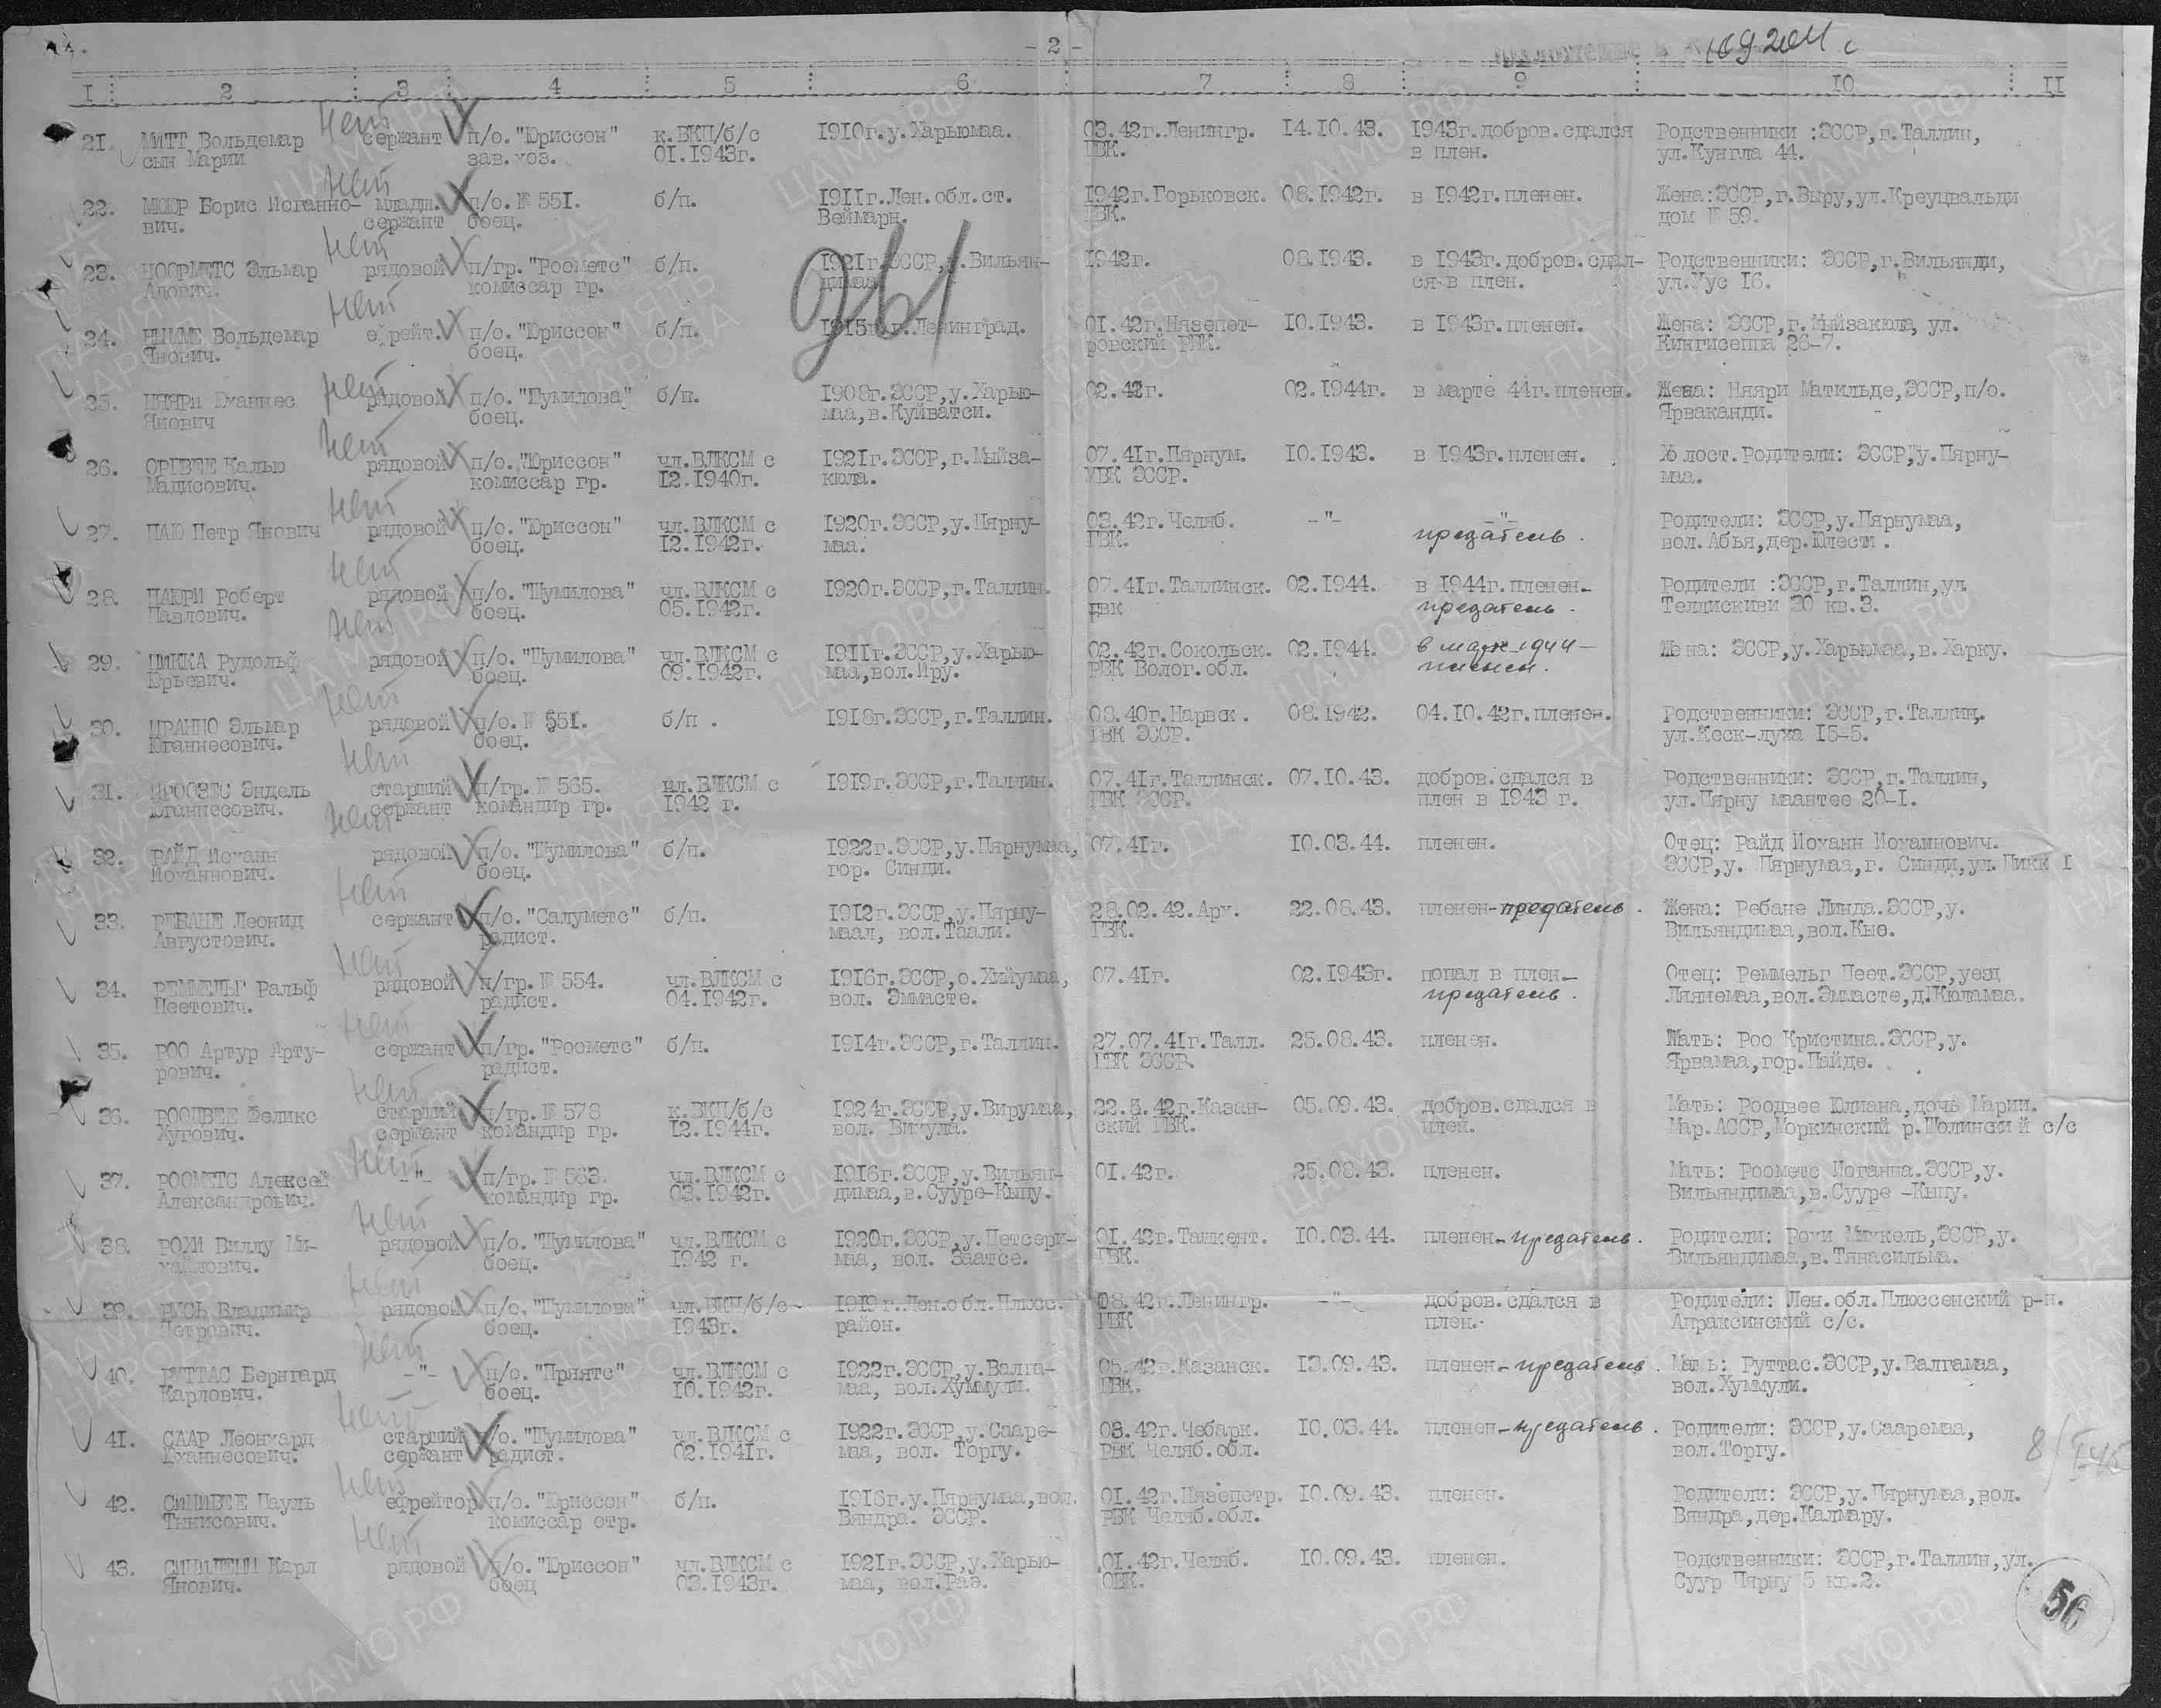 - 2 -
109204 с
I 2 3 4 5 6 7 8 9 10 II
21. МИТТ Вольдемар сержант п/о. "Юриссон" к.ВКП/б/с 1910г.у.Харьюмаа. 03.42г.Ленингр. 14.10.43. 1943г.добров.сдался Родственники :ЭССР,г.Таллин,
сын Марии зав.хоз. 01.1943г. ГВК. в плен. ул.Кунгла 44.
нет
22. Борис Иоганно- младш. п/о.№ 551. б/п. 1911г.Лен.обл.ст. 1942г.Горьковск. 08.1942г. в 1942г.пленен. Жена:ЭССР,г.Выру,ул.Креуцвальди
вич. сержант боец. Веймарн. ГВК. дом № 59.
нет
23. НООРМЕТС Эльмар рядовой п/гр."Роометс" б/п. 1921г.ЭССР,у.Вильян- 1942г. 08.1943. в 1943г.добров.сдал- Родственники: ЭССР,г.Вильянди,
Адович. комиссар гр. димаа ся в плен. ул.Уус 16.
нет
24. НЫММЕ Вольдемар ефрейт. п/о. "Юриссон" б/п. 1915г.г.Ленинград. 01.42г.Нязепет- 10.1943. в 1943г.пленен. Жена: ЭССР,г.Мыйзакюла, ул.
Янович. боец. ровский РВК. Кингисеппа 26-7.
нет
25. НЯЯРИ Юханнес рядовой п/о. "Шумилова" б/п. 1908г.ЭССР,у.Харью- 02.42г. 02.1944г. в марте 44г.пленен. Жена: Няяри Матильде,ЭССР,п/о.
Янович боец. маа,в.Куйватси. Ярваканди.
нет
26. ОРГВЕЕ Калью рядовой п/о."Юриссон" чл.ВЛКСМ с 1921г.ЭССР,г.Мыйза- 07.41г.Пярнум. 10.1943. в 1943г.пленен. Холост.Родители: ЭССР,у.Пярну-
Мадисович. комиссар гр. 12.1940г. кюла. УВК ЭССР. маа.
нет
27. ПАЮ Петр Янович рядовой п/о. "Юриссон" чл.ВЛКСМ с 1920г.ЭССР,у.Пярну- 03.42г.Челяб. -"- -"- Родители: ЭССР,у.Пярнумаа,
боец. 12.1942г. маа. ГВК. предатель. вол.Абья,дер.
нет
28. ПАЮРИ Роберт рядовой п/о. "Шумилова" чл.ВЛКСМ с 1920г.ЭССР,г.Таллин. 07.41г.Таллинск. 02.1944. в 1944г.пленен- Родители :ЭССР,г.Таллин,ул.
Павлович. боец. 05.1942г. ГВК предатель. Теллискиви 20 кв.3.
нет
29. ПИККА Рудольф рядовой п/о. "Шумилова" чл.ВЛКСМ с 1911г.ЭССР,у.Харью- 02.42г.Сокольск. 02.1944. в марте 1944- Жена: ЭССР,у.Харьюмаа,в.Харку.
Юрьевич. боец. 09.1942г. маа,вол.Иру. РВК Волог.обл. пленен.
нет
30. ПРАННО Эльмар рядовой п/о.№ 551. б/п . 1918г.ЭССР,г.Таллин. 08.40г.Нарвск. 08.1942. 04.10.42г.пленен. Родственники: ЭССР,г.Таллин,
Юганнесович. боец. ГВК ЭССР. ул.Кеск-луха 15-5.
нет
31. ПРООЗЕС Эндель старший п/гр.№ 565. чл.ВЛКСМ с 1919г.ЭССР,г.Таллин. 07.41г.Таллинск. 07.10.43. добров.сдался в Родственники: ЭССР,г.Таллин,
Юганнесович. сержант командир гр. 1942 г. ГВК ЭССР. плен в 1943 г. ул.Пярну маантее 20-1.
нет
32. РАЙД Иоханн рядовой п/о. "Шумилова" б/п. 1922г.ЭССР,у.Пярнумаа, 07.41г. 10.03.44. пленен. Отец: Райд Иоханн Иоханнович.
Иоханнович. боец. гор. Синди. ЭССР,у. Пярнумаа,г. Синди,ул.Пикк I
нет
33. РЕБАНЕ Леонид сержант п/о. "Салуметс" б/п. 1912г.ЭССР,у.Пярну- 28.02.42.Арх. 22.08.43. пленен-предатель. Жена: Ребане Линда.ЭССР,у.
Августович. радист. маал, вол.Таали. ГВК. Вильяндимаа,вол.Кыо.
нет
34. РЕММЕЛЬГ Ральф рядовой п/гр.№ 554. чл.ВЛКСМ с 1916г.ЭССР,о.Хийумаа, 07.41г. 02.1943г. попал в плен- Отец: Реммельг Пеет.ЭССР,уезд
Пеетович. радист. 04.1942г. вол. Эммасте. предатель. Ляянемаа,вол.Эммасте,д.Кюламаа.
нет
35. РОО Артур Арту- сержант п/гр. "Роометс" б/п. 1914г.ЭССР,г.Таллин. 27.07.41г.Талл. 25.08.43. пленен. Мать: Роо Кристина.ЭССР,у.
рович. радист. ГВК ЭССР. Ярвамаа,гор.Пайде.
нет
36. РООДВЕЕ Феликс старший п/гр.№ 578 к.ВКП/б/с 1924г.ЭССР,у.Вирумаа, 22.5.42г.Казан- 05.09.43. добров.сдался в Мать: Роодвее Юлиана,дочь Марии.
Хугович. сержант командир гр. 12.1944г. вол. Вихула. ский ГВК. плен. Мар.АССР,Моркинский р.Шолинский с/с
нет
37. РООМЕТС Алексей -"- п/гр.№ 563. чл.ВЛКСМ с 1916г.ЭССР,у.Вильян- 01.42г. 25.08.43. пленен. Мать: Роометс Иоганна.ЭССР,у.
Александрович. командир гр. 03.1942г. димаа,в.Сууре-Кыпу. Вильяндимаа,в.Сууре -Кыпу.
нет
38. РОХИ Виллу Ми- рядовой п/о. "Шумилова" чл.ВЛКСМ с 1920г.ЭССР,у.Петсери- 01.42г.Ташкент. 10.03.44. пленен-предатель. Родители: Рохи Михкель,ЭССР,у.
хайлович. боец. 1942 г. маа, вол. Заатсе. ГВК. Вильяндимаа,в.Тянасильма.
нет
39. РУСЬ Владимир рядовой п/о. "Шумилова" чл.ВКП/б/с- 1919г.Лен.обл.Плюсс. 08.42г.Ленингр. -"- добров.сдался в Родители: Лен.обл.Плюссенский р-н.
Петрович. боец. 1943г. район. ГВК плен. Апраксинский с/с.
нет
40. РУТТАС Бернгард -"- п/о. "Приятс" чл.ВЛКСМ с 1922г.ЭССР,у.Валга- 05.42г.Казанск. 13.09.43. пленен-предатель. Мать: Руттас.ЭССР,у.Валгамаа,
Карлович. боец. 10.1942г. маа, вол.Хуммули. ГВК. вол.Хуммули.
нет
41. СААР Леонхард старший п/о. "Шумилова" чл.ВЛКСМ с 1922г.ЭССР,у.Сааре- 03.42г.Чебарк. 10.03.44. пленен-предатель. Родители: ЭССР,у.Сааремаа,
Юханнесович. сержант радист. 02.1941г. маа, вол. Торгу. РВК Челяб.обл. вол.Торгу.
нет
42. СИНИВЕЕ Пауль ефрейтор п/о. "Юриссон" б/п. 1916г.у.Пярнумаа,вол. 01.42г.Нязепетр. 10.09.43. пленен. Родители: ЭССР,у.Пярнумаа,вол.
Тынисович. комиссар отр. Вяндра. ЭССР. РВК Челяб.обл. Вяндра,дер.Калмару.
нет
43. Карл рядовой п/о. "Юриссон" чл.ВЛКСМ с 1921г.ЭССР,у.Харью- 01.42г.Челяб. 10.09.43. пленен. Родственники: ЭССР,г.Таллин,ул.
Янович. боец 03.1943г. маа, вол.Раэ. ОВК. Суур Пярну 5 кв.2.
56